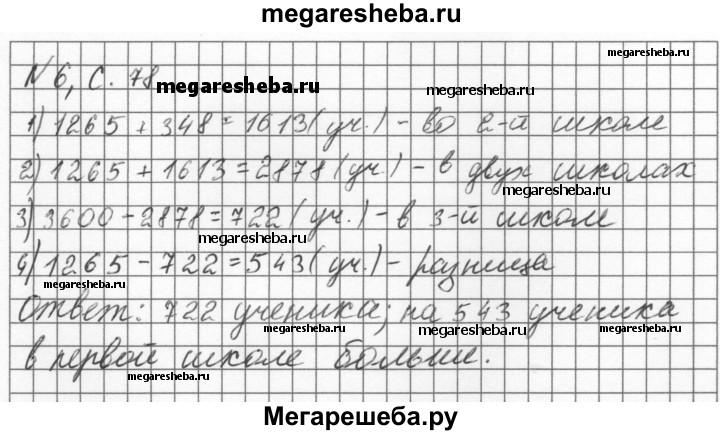 megaresheba.ru
megaresheba.ru
N6, с. 78
megaresheba.ru
megaresheba.ru
1) 1265 + 348 = 1613 (уч.) - во 2-й школе
2) 1265 + 1613 = 2878 (уч.) - в двух школах
megaresheba.ru
3) 3600 - 2878 = 722 (уч.) - в 3-й школе
megaresheba.ru
4) 1265 - 722 = 543 (уч.) - разница
Ответ: 722 ученика; на 543 ученика
megaresheba.ru
megaresheba.ru
megaresheba.ru
в первой школе больше.
megaresheba.ru
Мегарешеба.ру